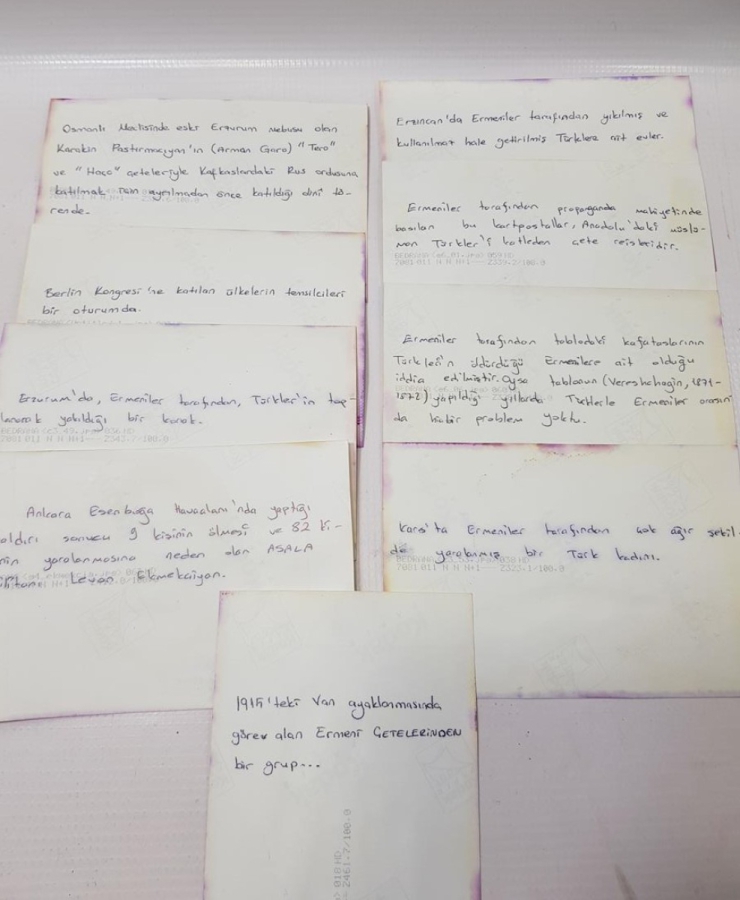 Osmanlı Meclisinde eski Erzurum mebusu olan
Karakin Pastırmacıyan'ın (Armen Garo) "Tero"
ve "Haço" çeteleriyle Kafkaslardaki Rus ordusuna
katılmak için ayrılmadan önce katıldığı dini tö-
rende.
Berlin Kongresi'ne katılan ülkelerin temsilcileri
bir oturumda.
Erzurum'da, Ermeniler tarafından, Türkler'in top-
lanarak yakıldığı bir konak.
Ankara Esenboğa Havaalanı'nda yaptığı
aldırı sonucu 9 kişinin ölmesi ve 82 ki-
nin yaralanmasına neden olan ASALA
Levon Ekmekçiyan.
Erzincan'da Ermeniler tarafından yıkılmış ve
kullanılmaz hale getirilmiş Türklere ait evler.
Ermeniler tarafından propaganda mahiyetinde
basılan bu kartpostallar, Anadolu'daki müslü-
man Türkler'i katleden çete reisleridir.
7001 011 N N N+1--- 2339.2/100.0
Ermeniler tarafından tablodaki kafataslarının
Türkler'in öldürdüğü Ermenilere ait olduğu
iddia edilmiştir. Oysa tablonun (Vereshchagin, 1871-
1872) yapıldığı yıllarda Türklerle Ermeniler arasın-
da hiçbir problem yoktu.
Kars'ta Ermeniler tarafından çok ağır şekil-
de yaralanmış bir Türk kadını.
7001 011 N N N+1--- 2323.1/100.0
1915'teki Van ayaklanmasında
görev alan Ermeni ÇETELERİNDEN
bir grup...
018 HD
2461.7/100.0